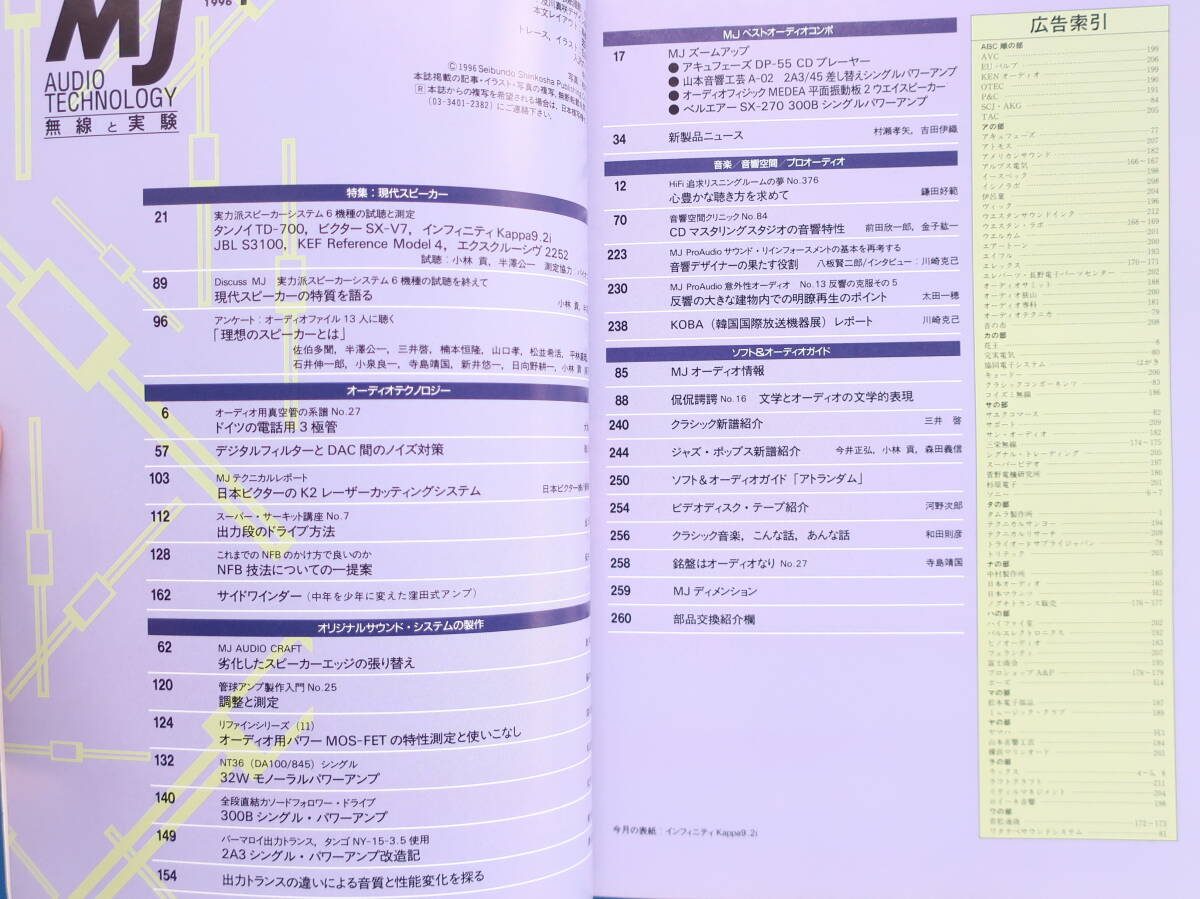 1996
MJ
AUDIO
TECHNOLOGY
無線と実験
本文レイアウト
トレース，イラスト
©1996 Seibundo Shinkosha Publishing
本誌掲載の記事・イラスト・写真の複写，無断転載を
R 本誌からの複写を希望される場合は，日本複写権
(03-3401-2382)にご連絡下さい。
特集：現代スピーカー
21 実力派スピーカーシステム6機種の試聴と測定
タンノイTD-700，ビクターSX-V7，インフィニティKappa9.2i
JBL S3100，KEF Reference Model 4，エクスクルーシヴ2252
試聴：小林 貢，半澤公一 測定協力：
89 Discuss MJ 実力派スピーカーシステム6機種の試聴を終えて
現代スピーカーの特質を語る 小林 貢，
96 アンケート：オーディオファイル13人に聴く
「理想のスピーカーとは」
佐伯多聞，半澤公一，三井啓，楠本恒隆，山口孝，松並希活，
石井伸一郎，小泉良一，寺島靖国，新井悠一，日向野耕一，小林 貢
オーディオテクノロジー
6 オーディオ用真空管の系譜No.27
ドイツの電話用3極管
57 デジタルフィルターとDAC間のノイズ対策
103 MJテクニカルレポート
日本ビクターのK2レーザーカッティングシステム 日本ビクター
112 スーパー・サーキット講座No.7
出力段のドライブ方法
128 これまでのNFBのかけ方で良いのか
NFB技法についての一提案
162 サイドワインダー（中年を少年に変えた窪田式アンプ）
オリジナルサウンド・システムの製作
62 MJ AUDIO CRAFT
劣化したスピーカーエッジの張り替え
120 管球アンプ製作入門No.25
調整と測定
124 リファインシリーズ（11）
オーディオ用パワーMOS-FETの特性測定と使いこなし
132 NT36（DA100/845）シングル
32Wモノーラルパワーアンプ
140 全段直結カソードフォロワー・ドライブ
300Bシングル・パワーアンプ
149 パーマロイ出力トランス，タンゴNY-15-3.5使用
2A3シングル・パワーアンプ改造記
154 出力トランスの違いによる音質と性能変化を探る
MJベストオーディオコンポ
17 MJズームアップ
●アキュフェーズDP-55 CDプレーヤー
●山本音響工芸A-02 2A3/45差し替えシングルパワーアンプ
●オーディオフィジックMEDEA平面振動板2ウエイスピーカー
●ベルエアーSX-270 300Bシングルパワーアンプ
34 新製品ニュース 村瀬孝矢，吉田伊織
音楽／音響空間／プロオーディオ
12 HiFi追求リスニングルームの夢No.376
心豊かな聴き方を求めて 鎌田好範
70 音響空間クリニックNo.84
CDマスタリングスタジオの音響特性 前田欣一郎，金子紘一
223 MJ ProAudioサウンド・リインフォースメントの基本を再考する
音響デザイナーの果たす役割 八板賢二郎/インタビュー：川崎克己
230 MJ ProAudio意外性オーディオ No.13反響の克服その5
反響の大きな建物内での明瞭再生のポイント 太田一穂
238 KOBA（韓国国際放送機器展）レポート 川崎克己
ソフト&オーディオガイド
85 MJオーディオ情報
88 侃侃諤諤No.16 文学とオーディオの文学的表現
240 クラシック新譜紹介 三井 啓
244 ジャズ・ポップス新譜紹介 今井正弘，小林 貢，森田義信
250 ソフト&オーディオガイド「アトランダム」
254 ビデオディスク・テープ紹介 河野次郎
256 クラシック音楽，こんな話，あんな話 和田則彦
258 銘盤はオーディオなりNo.27 寺島靖国
259 MJディメンション
260 部品交換紹介欄
今月の表紙：インフィニティKappa9.2i
広告索引
ABC順の部
AVC 199
EUバルブ 206
KENオーディオ 199
OTEC 190
P&C 191
SCJ・AKG 84
TAC 205
アの部
アキュフェーズ 77
アトモス 207
アメリカンサウンド 182
アルプス電気 166～167
イースペック 198
イシノラボ 208
伊呂葉 204
ヴィック 196
ウエスタンサウンドインク 212
ウエスタン・ラボ 168～169
ウエルカム 201
エアートーン 200
エイフル 193
エレックス 170～171
エレパーツ・長野電子パーツセンター 202
オーディオサミット 188
オーディオ狭山 200
オーディオ専科 181
オーディオテクニカ 79
音の市 208
カの部
花王 8
完実電気 80
協同電子システム はがき
キョードー 206
クラシックコンポーネンツ 83
コイズミ無線 186
サの部
サエクコマース 82
サポート 209
サン・オーディオ 182
三栄無線 174～175
シグナル・トレーディング 205
スーパービデオ 197
菅野電機研究所 180
杉原電子 201
ソニー 6～7
タの部
タムラ製作所 1
テクニカルサンヨー 194
テクニカルリサーチ 209
トライオードサプライジャパン 78
トリテック 203
ナの部
中村製作所 185
日本オーディオ 165
日本マランツ
ノグチトランス販売 176～177
ハの部
ハイファイ堂 202
パルエレクトロニクス 192
ヒノオーディオ 183
フェランティ 207
富士商会 195
プロショップA&F 178～179
ボーズ
マの部
松本電子部品 192
ミュージック・クラブ 189
ヤの部
ヤマハ
山本音響工芸 184
横浜マリンオード 203
ラの部
ラックス 4～5, 8
ラフトクラフト 211
リティルマネジメント 204
ロイーネ音響 198
ワの部
若松通商 172～173
ワタナベサウンドシステム 81